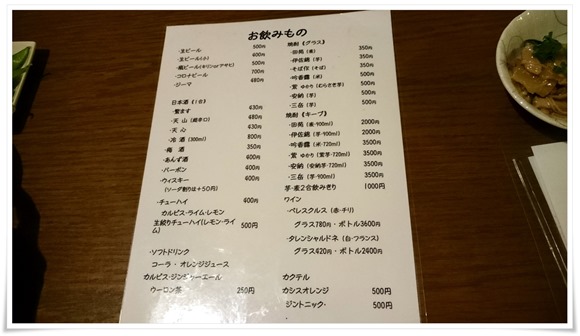 お飲みもの
・生ビール 500円
・生ビール(小) 400円
・瓶ビール(キリンorアサヒ) 500円
・コロナビール 700円
・ジーマ 480円
日本酒
・鷲ます 430円
・天山(超辛口) 480円
・天心 430円
・冷酒(300ml) 800円
・梅酒 350円
・あんず酒 400円
・バーボン 400円
・ウィスキー 400円
(ソーダ割りは+50円)
・チューハイ 400円
カルピス・ライム・レモン
生絞りチューハイ(レモン・ライム) 500円
・ソフトドリンク
コーラ ・ オレンジジュース
カルピス・ジンジャーエール
ウーロン茶 250円
焼酎《グラス》
・田苑(麦) 350円
・伊佐錦(芋) 350円
・そば作(そば) 350円
・吟香露(米) 500円
・紫 ゆかり(むらさき芋) 500円
・安納(芋) 500円
・三岳(芋) 500円
焼酎《キープ》
・田苑(麦・900ml) 2000円
・伊佐錦(芋・900ml) 2000円
・吟香露(米・720ml) 3500円
・紫 ゆかり(紫芋・720ml) 3500円
・安納(安納芋・720ml) 3500円
・三岳(芋・900ml) 3500円
芋・麦2合飲みきり 1000円
ワイン
・ペレスクルス(赤・チリ)
グラス780円・ボトル3600円
・タレンシャルドネ(白・フランス)
グラス420円・ボトル2400円
カクテル
カシスオレンジ 500円
ジントニック・ 500円